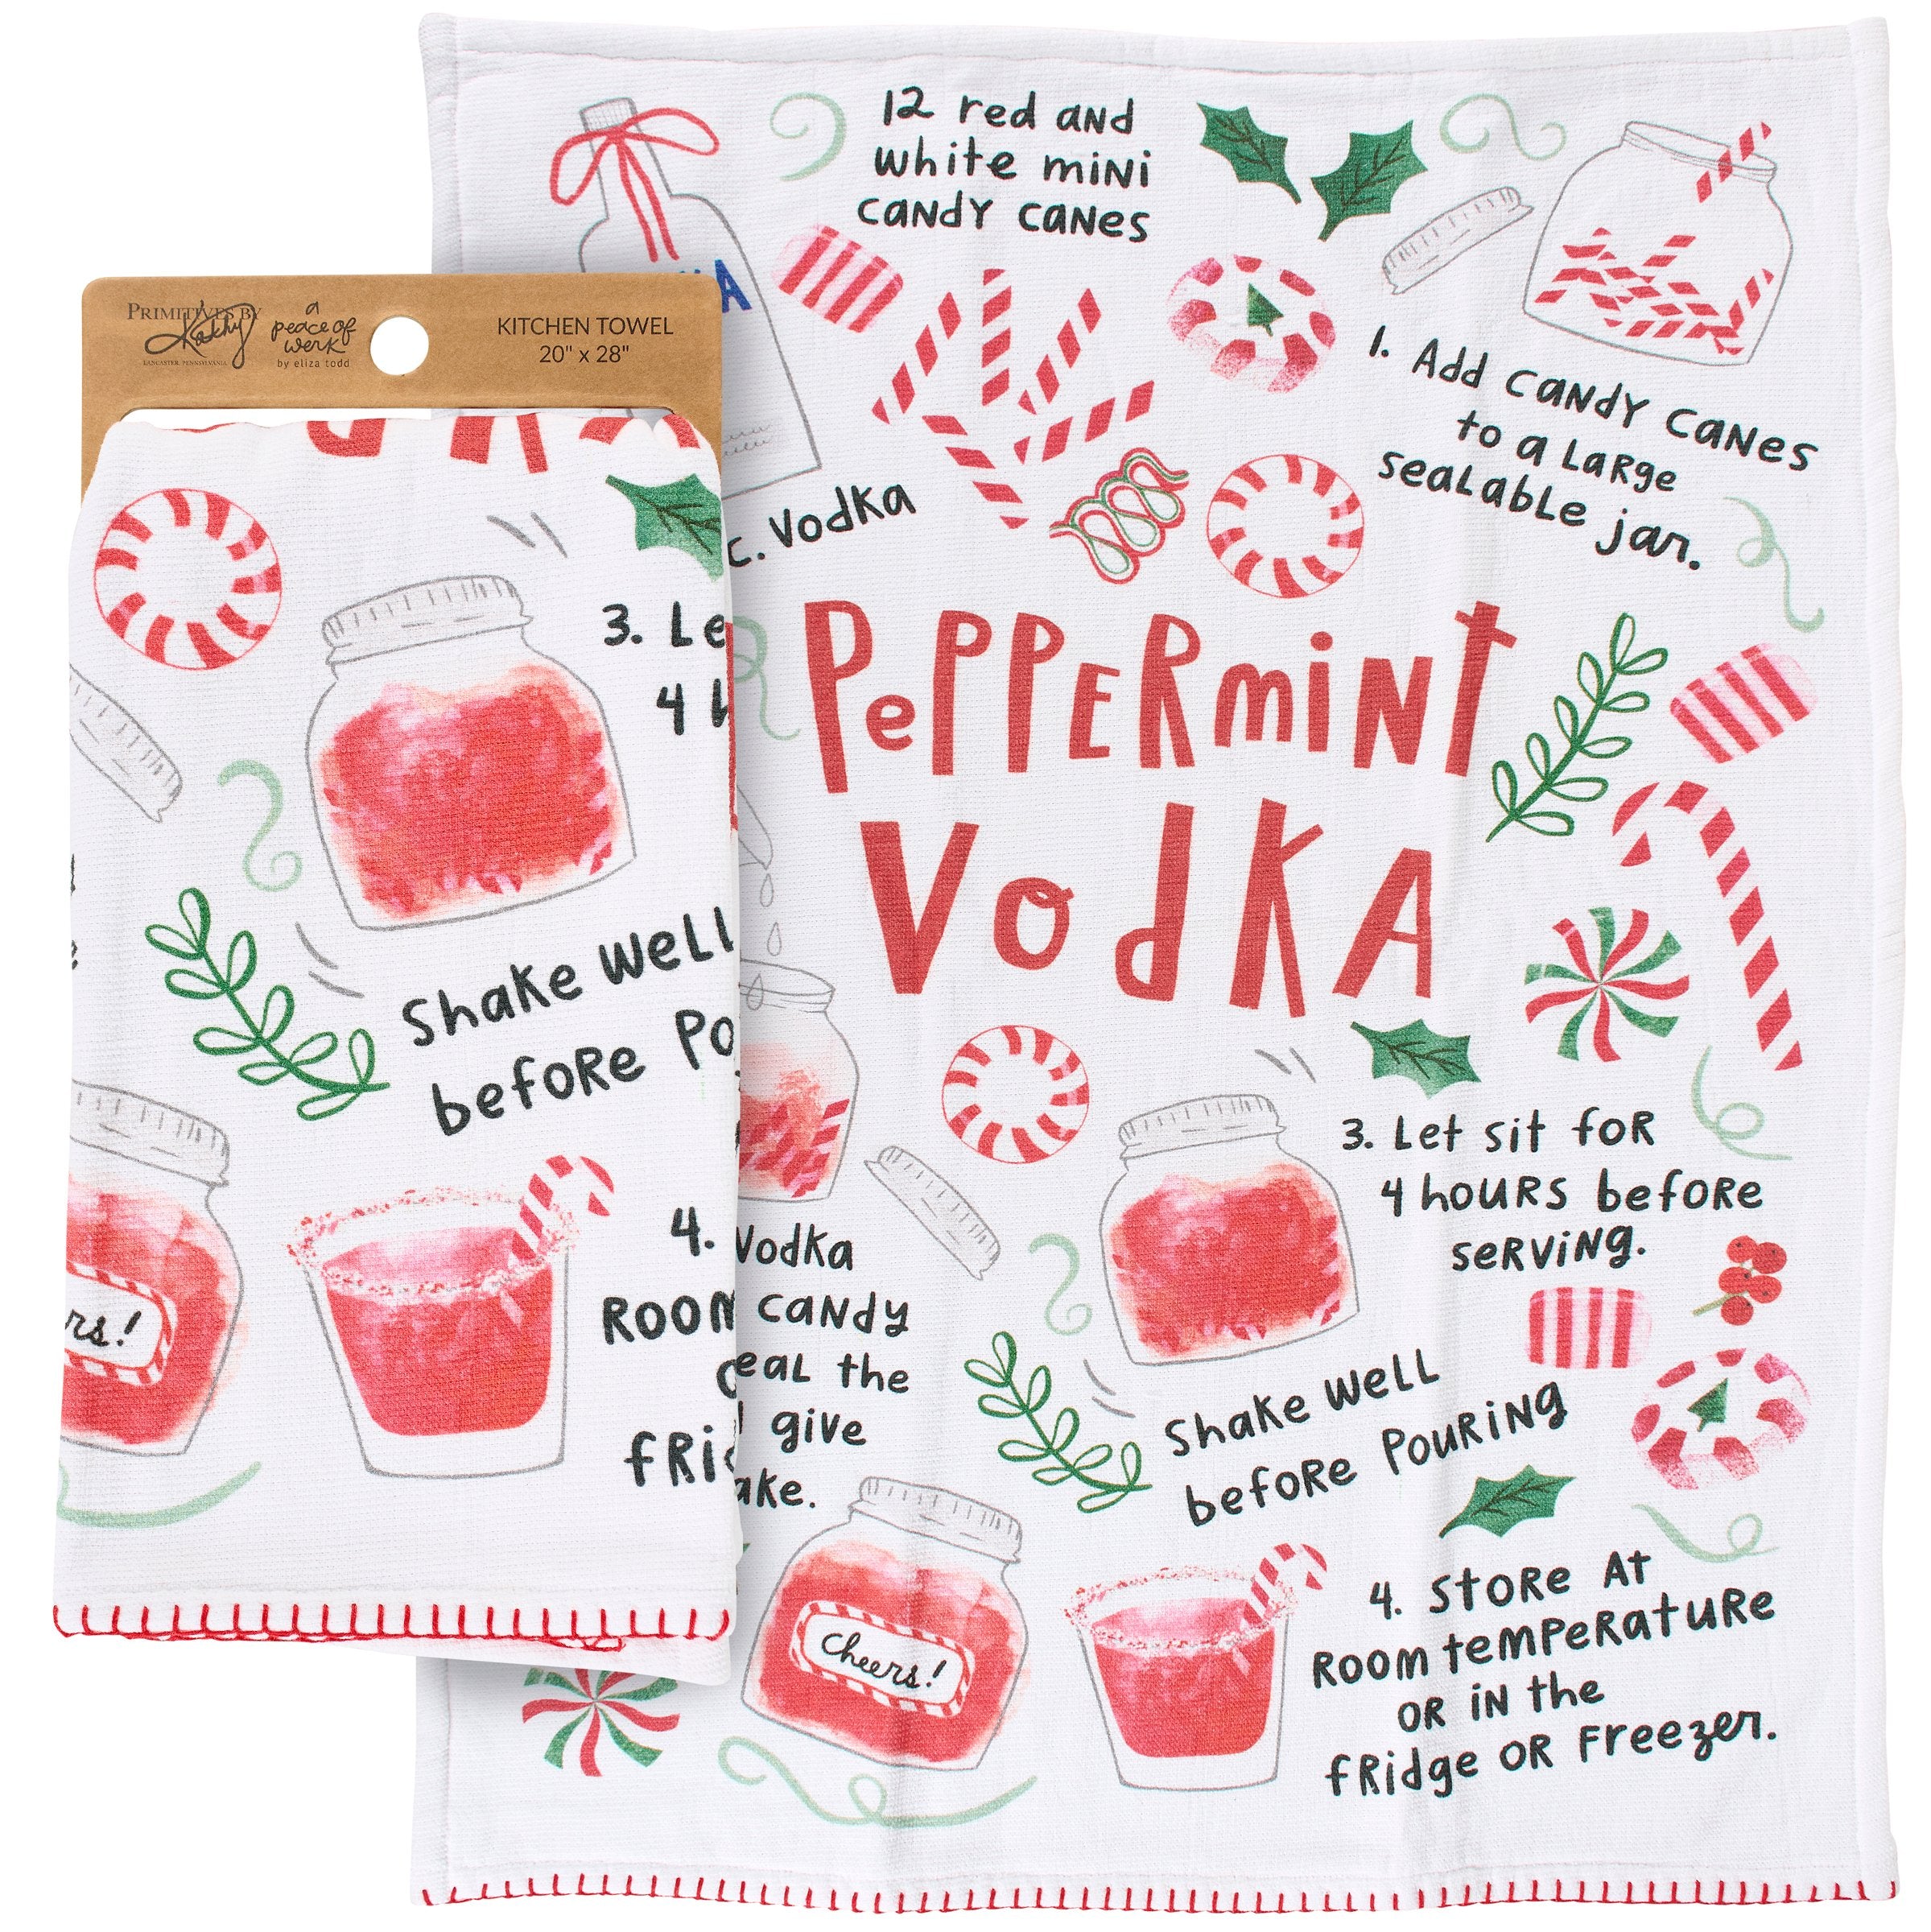 PRIMITIVES BY
Kathy
LANCASTER, PENNSYLVANIA
a
peace of
werk
by eliza todd
KITCHEN TOWEL
20" x 28"
3. Le
4 h
Shake well
before Po
4.
Room
fRid
rs!
12 red and
white mini
candy canes
A
c. Vodka
1. Add candy canes
to a large
sealable jar.
Peppermint
Vodka
Vodka
candy
eal the
give
ake.
3. Let sit for
4 hours before
serving.
Shake well
before Pouring
Cheers!
4. Store at
Room temperature
or in the
fridge or freezer.